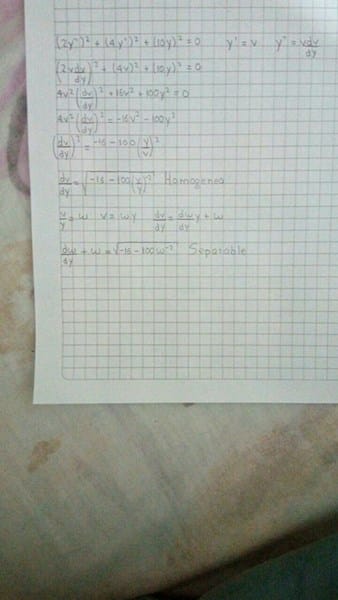 (2y'')² + (4y')² + (10y)² = 0   y' = v   y'' = v dv/dy
(2v dv/dy)² + (4v)² + (10y)² = 0
4v² (dv/dy)² + 16v² + 100y² = 0
4v² (dv/dy)² = -16v² - 100y²
(dv/dy)² = -16 - 100 (y/v)²
dv/dy = √(-16 - 100 (y/v)²) Homogenea
v/y = w   v = wy   dv/dy = dw/dy y + w
dw/dy + w = √(-16 - 100w⁻²) Separable